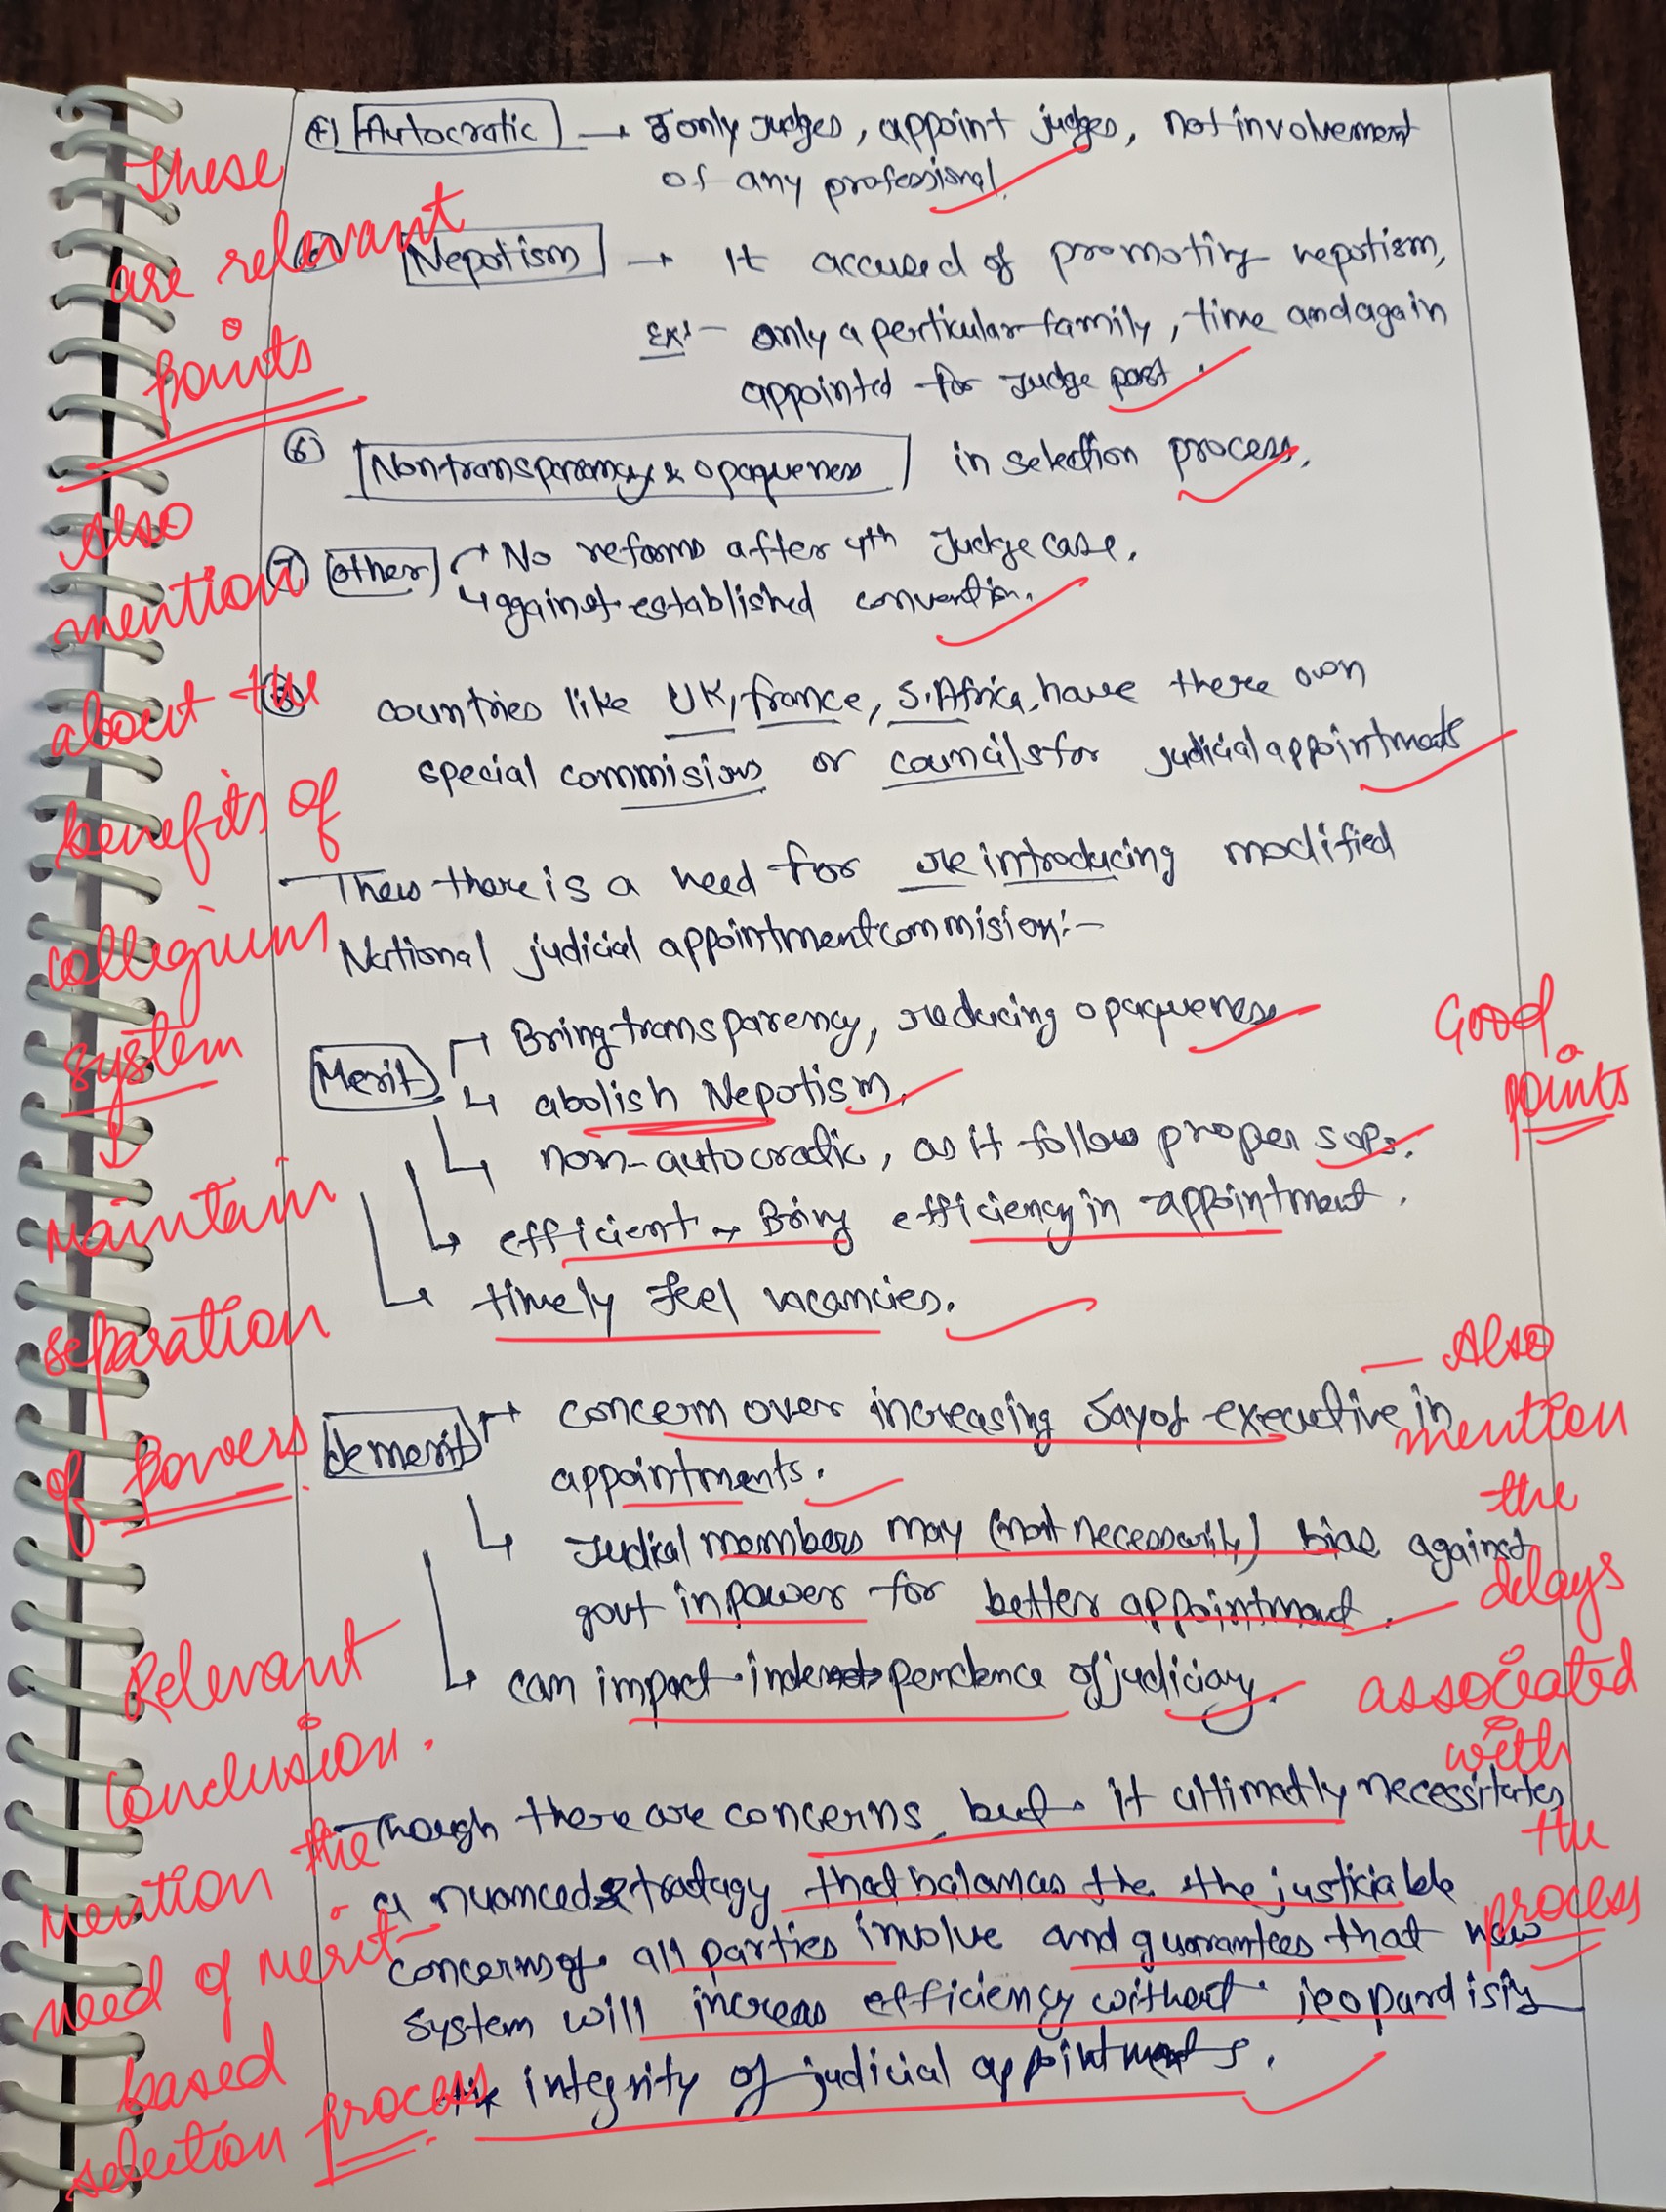 (4) Autocratic → only judges, appoint judges, not involvement
of any professional.
Nepotism → It accused of promoting nepotism,
Ex:- only a perticular family, time and again
appointed for Judge post.
(6) Nontransparancy & opaqueness in selection process.
(7) other → No reforms after 4th Judge case.
↳ against established convention.
(8) countries like UK, france, S.Africa, have there own
special commisions or councils for judicial appointments
Thus there is a need for reintroducing modified
National judicial appointment commision:-
Merit → Bring transparency, reducing opaqueness
↳ abolish Nepotism.
↳ non-autocratic, as it follow proper sops.
↳ efficient → Bring efficiency in appointment.
↳ timely feel vacancies.
demerit → concern over increasing say of executive in
appointments.
↳ Judical members may (not necessarily) bias against
govt in power for better appointment.
↳ can impact independence of judiciary.
Though there are concerns, but it ultimatly necessitates
a nuanced stratagy that balances the the justiciable
concerns of all parties involve and guarantees that new
system will increas efficiency without jeopardising
integrity of judicial appointments.
These
are relevant
points
Also
mention
about the
benefits of
collegium
system
Maintain
separation
of powers
Relevant
conclusion.
Mention the
need of merit-
based
selection process
Good
points
— Also
mention
the
delays
associated
with
the
process